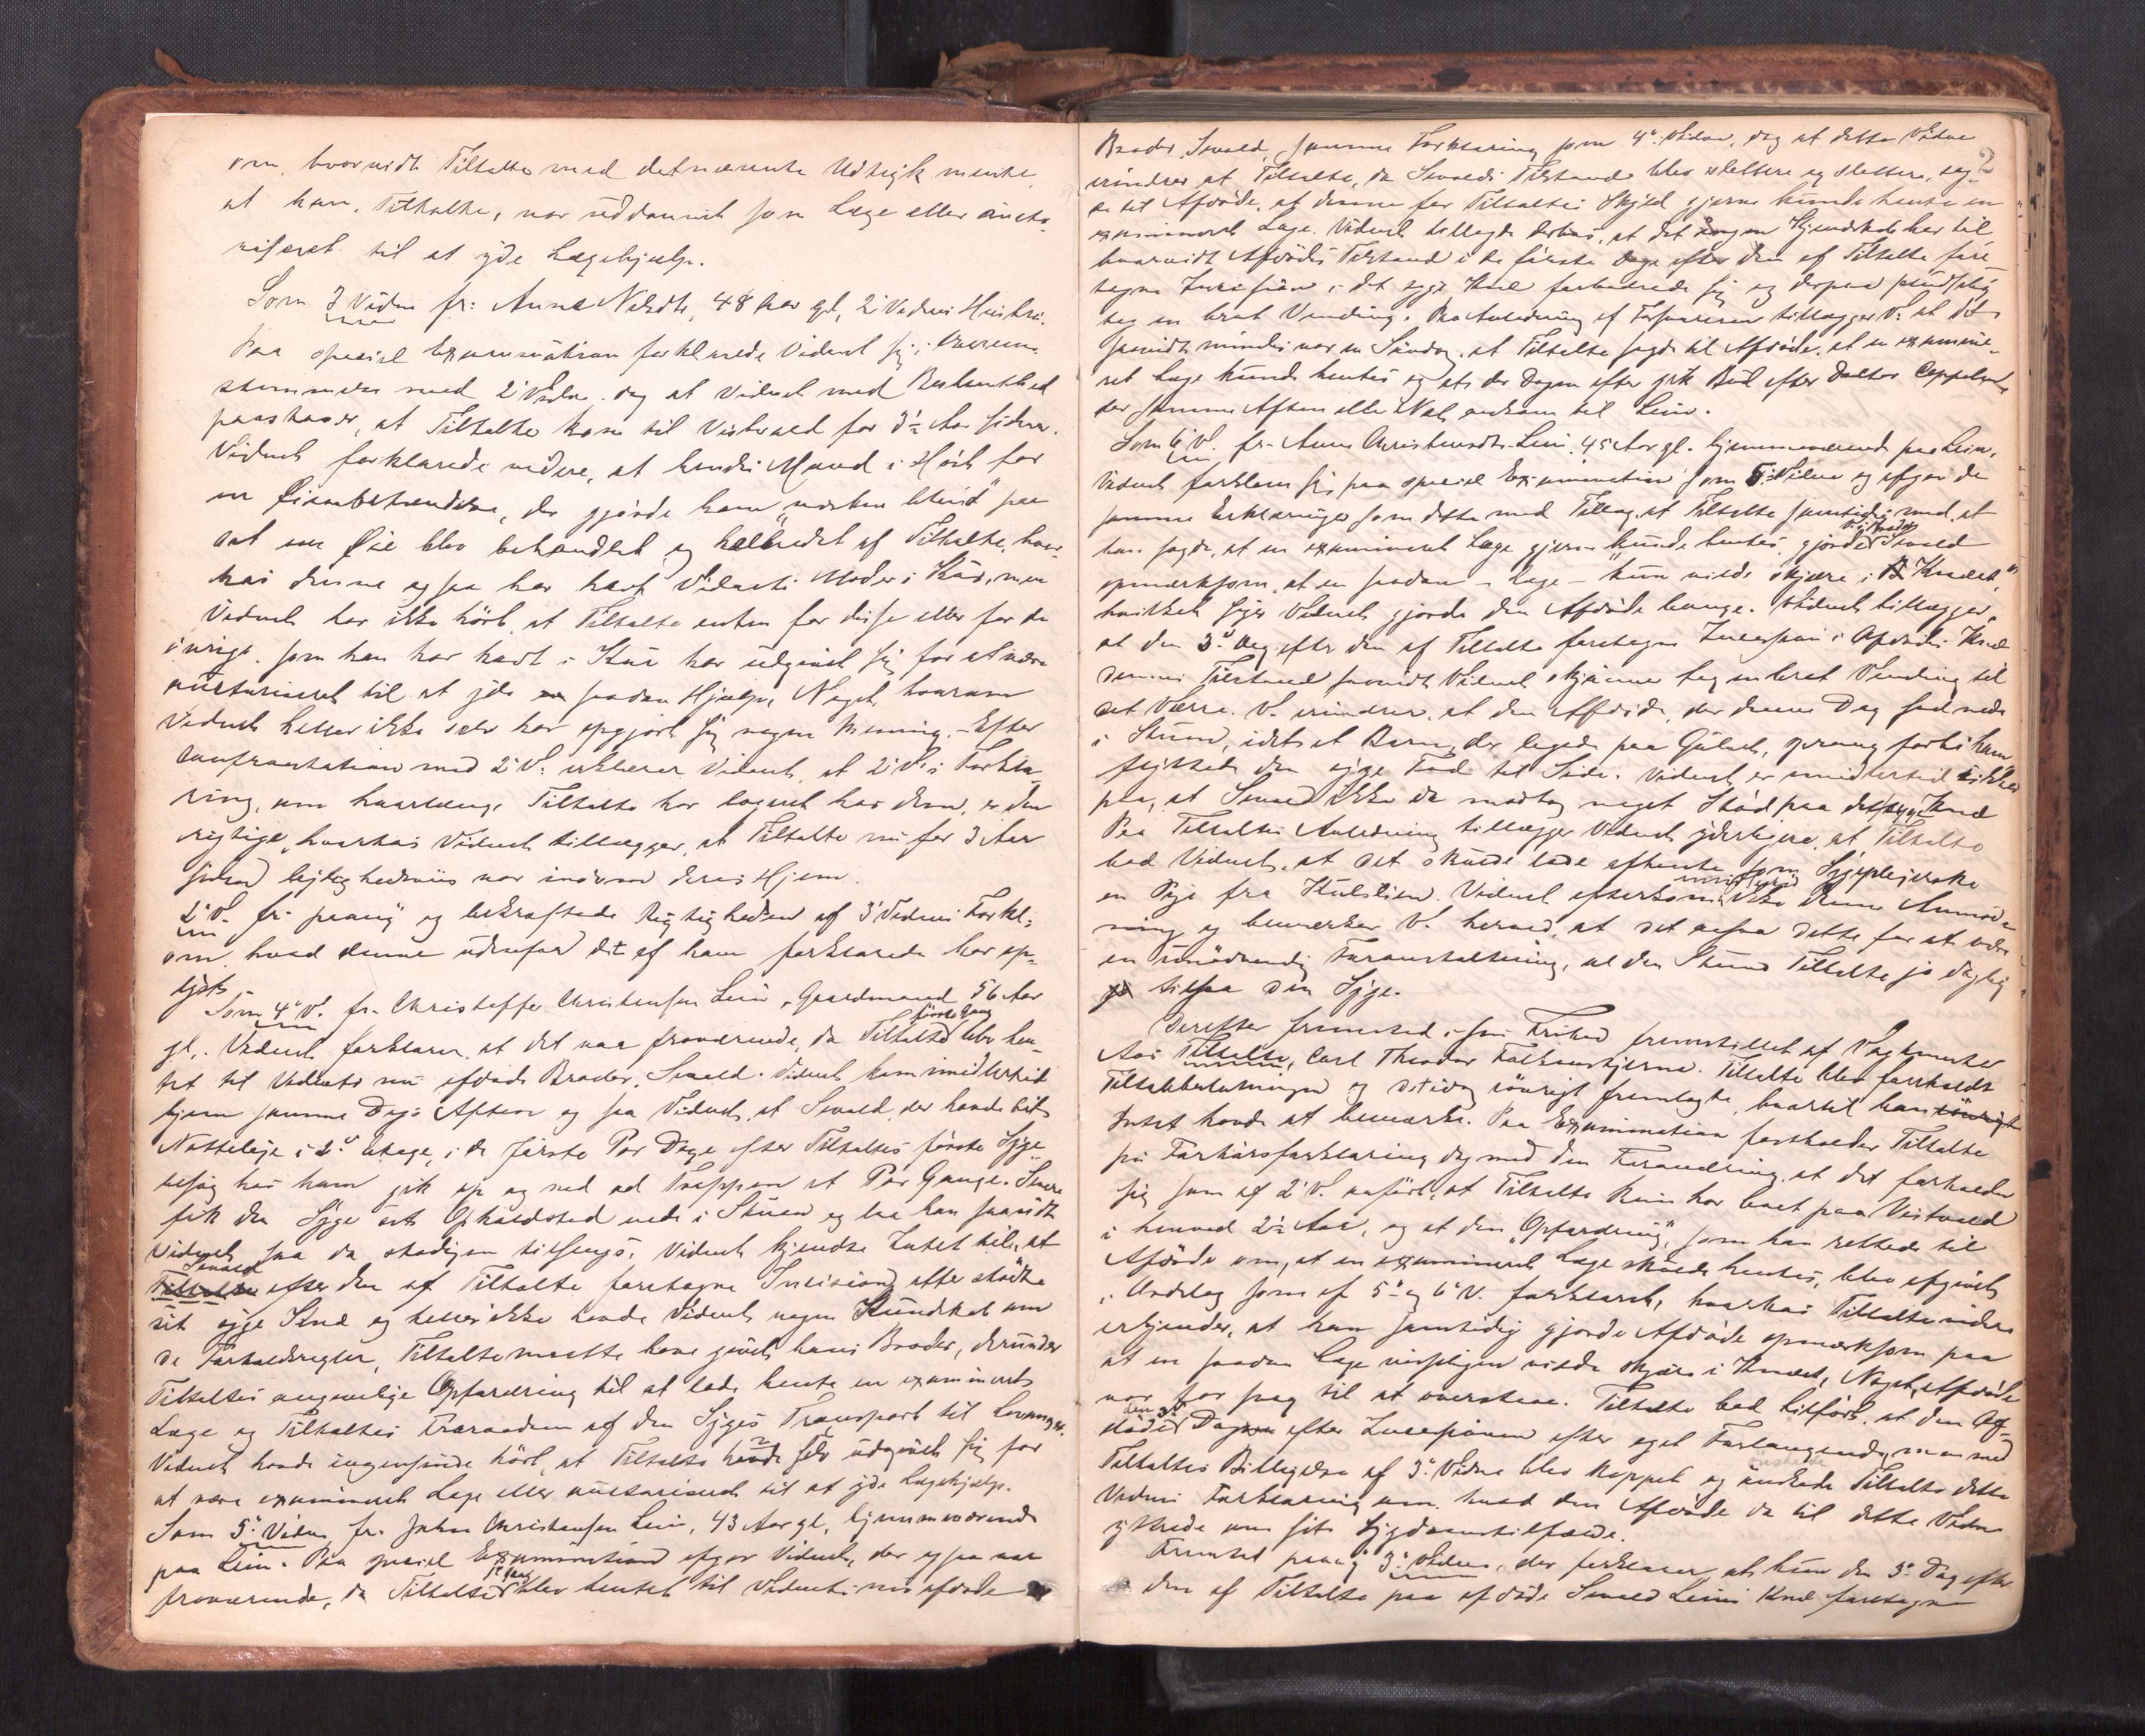 om, hvorvidt Tiltalte med detnævnte Udtryk mente,
at han, Tiltalte, var uddannet som Læge eller aucto-
riseret til at yde Lægehjælp.
Som 3 Vidne fr: Anne Nilsdtr, 48 Aar gl, 2' Vidnes Hustru.
Paa speciel Examination forklarede Vidnet sig i Overens-
stemmelse med 2' Vidne, dog at Vidnet med Bestemthed
paastaar, at Tiltalte kom til Vistvold for 3½ Aar siden.
Vidnet forklarede videre, at hendes Mand i Høst for
en Øienbetændelse, der gjorde ham "næsten blind" paa
det ene Øie blev behandlet og helbredet af Tiltalte, hvor-
hos denne ogsaa har havt Vidnets Moder i Kur, men
Vidnet har ikke hørt, at Tiltalte enten for disse eller for de
øvrige, som han har havt i Kur har udgivet sig for at være
auctoriseret til at yde saadan Hjælp, Noget, hvorom
Vidnet heller ikke selv har opgjort sig nogen Mening. - Efter
Confrontation med 2' V. erklærer Vidnet, at 2' V.s Forkla-
ring, om hvorlænge Tiltalte har logeret hos dem, er den
rigtige, hvorhos Vidnet tillægger, at Tiltalte nu for 3 Aar
siden lejlighedsvis var indom deres Hjem.
2' V. fr. paany og bekræftede Rigtigheden af 3' Vidnes Forkl:
om, hvad denne udenfor det af ham forklarede har op-
lyst.
Som 4' V. fr. Christoffer Christensen Lein, Gaardmand 56 Aar
gl. Vidnet forklarer, at det var fraværende, da Tiltalte første Gang blev hen-
tet til Vidnets nu afdøde Broder, Sevald. Vidnet kom imidlertid
hjem samme Dags Aften og saa Vidnet, at Sevald, der havde sit
Natteleje i 2' Etage, i de første Par Dage efter Tiltaltes første Syge-
besøg hos ham gik op og ned ad Trappen et Par Gange. Senere
fik den Syge sit Opholdssted nede i Stuen og laa han saavidt
Vidnet saa da stadigen tilsengs. Vidnet kjendte Intet til, at
Sevald efter den af Tiltalte foretagne Incision efter stødte
sit syge Knæ og heller ikke havde Vidnet nogen Kundskab om
de Forholdsregler, Tiltalte maatte have givet hans Broder, derunder
Tiltaltes angivelige Opfordring til at lade hente en examineret
Læge og Tiltaltes Fraraaden af den Syges Transport til Levanger.
Vidnet havde ingensinde hørt, at Tiltalte havde selv udgivet sig for
at være examineret Læge eller auctoriseret til at yde Lægehjælp.
Som 5' Vidne fr. Johan Christensen Lein, 43 Aar gl, hjemmeværende
paa Lein. Paa speciel Examination afgav Vidnet, der ogsaa var
fraværende, da Tiltalte 1ste Gang blev hentet til Vidnets nu afdøde
2
Broder Sevald, samme Forklaring som 4' Vidne, dog at dette Vidne
erindrer at Tiltalte, da Sevalds Tilstand blev slettere og slettere, sag-
de til Afdøde, at denne for Tiltaltes Skyld gjerne kunde hente en
examineret Læge. Vidnet tillagde derhos, at det ingen Kjendskab har til
hvorvidt Afdødes Tilstand i de første Dage efter den af Tiltalte fore-
tagne Incision i det syge Knæ forbedrede sig og derpaa pludselig
tog en brat Vending. Paa Anledning af Forsvareren tillægger V. at det
saavidt mindes var en Søndag, at Tiltalte sagde til Afdøde, at en examine-
ret Læge kunde hentes og at der Dagen efter gik Bud efter Doktor Cappelen
der samme Aften eller Nat ankom til Lein.
Som 6' V. fr. Anne Christensdtr Lein, 45 Aar gl. hjemmeværende paa Lein.
Vidnet forklarer sig paa speciel Examination som 5' Vidne og afgav de
samme Erklæringer som dette med Tillæg, at Tiltalte samtidig med, at
han sagde, at en examineret Læge gjerne kunde hentes, gjorde Sevald
opmærksom, at en saadan - Læge - kun vilde skjære i Knæet,"
hvilket siger Vidnet gjorde den Afdøde bange. Vidnet tillægger,
at den 3' Dag efter den af Tiltalte foretagne Incision i Afdødes Knæ
dennes Tilstand saavidt Vidnet skjønner tog en brat Vending til
det Værre. V. erindrer, at den Afdøde, der denne Dag sad nede
i Stuen, idet et Barn, der legede paa Gulvet, sprang forbi ham
flyttede den syge Fod til Side. Vidnet er imidlertid sikker
paa, at Sevald ikke da modtog noget Stød paa det syge Knæ
Paa Tiltaltes Anledning tillægger Vidnet yderligere, at Tiltalte
bad Vidnet, at det skulde lade afhente som Sygeplejerske
en Pige fra Hulslien. Vidnet efterkom imidlertid ikke denne Anmod-
ning og bemærker V. herved, at det ansaa dette for at være
en unødvendig Foranstaltning, al den Stund Tiltalte jo daglig
tilsaa den Syge.
Derefter fremstod i sin Frihed fremstillet af Vagtmester
Aas Tiltalte, Carl Theodor Falkenstjerna. Tiltalte blev forholdt
Tiltalebeslutningen og det idag iøvrigt fremlagte, hvortil han
Intet havde at bemærke. Paa Examination fastholder Tiltalte
sin Forhørsforklaring dog med den Forandring, at det forholder
sig som af 2' V. anført, at Tiltalte kun har boet paa Vistvold
i henved 2½ Aar, og at den "Opfordring", som han rettede til
Afdøde om, at en examineret Læge skulde hentes, blev afgivet
i Ordelag som af 5' og 6' V. forklaret, hvorhos Tiltalte videre
erkjender, at han samtidig gjorde Afdøde opmærksom paa
at en saadan Læge visseligen vilde skjære i Knæet, Noget, Afdøde
var for svag til at overstaa. Tiltalte bad tilført, at den Af-
døde Dagen efter Incisionen efter eget Forlangende, men med
Tiltaltes Billigelse af 3' Vidne blev koppet og ønskede Tiltalte dette
Vidnes Forklaring om, hvad den Afdøde da til dette Vidne
ytrede om sit Sygdomstilfælde.
Fremstod paany 3' Vidne, der forklarer, at hun den 3' Dag efter
den af Tiltalte paa afdøde Sevald Leins Knæ foretagne